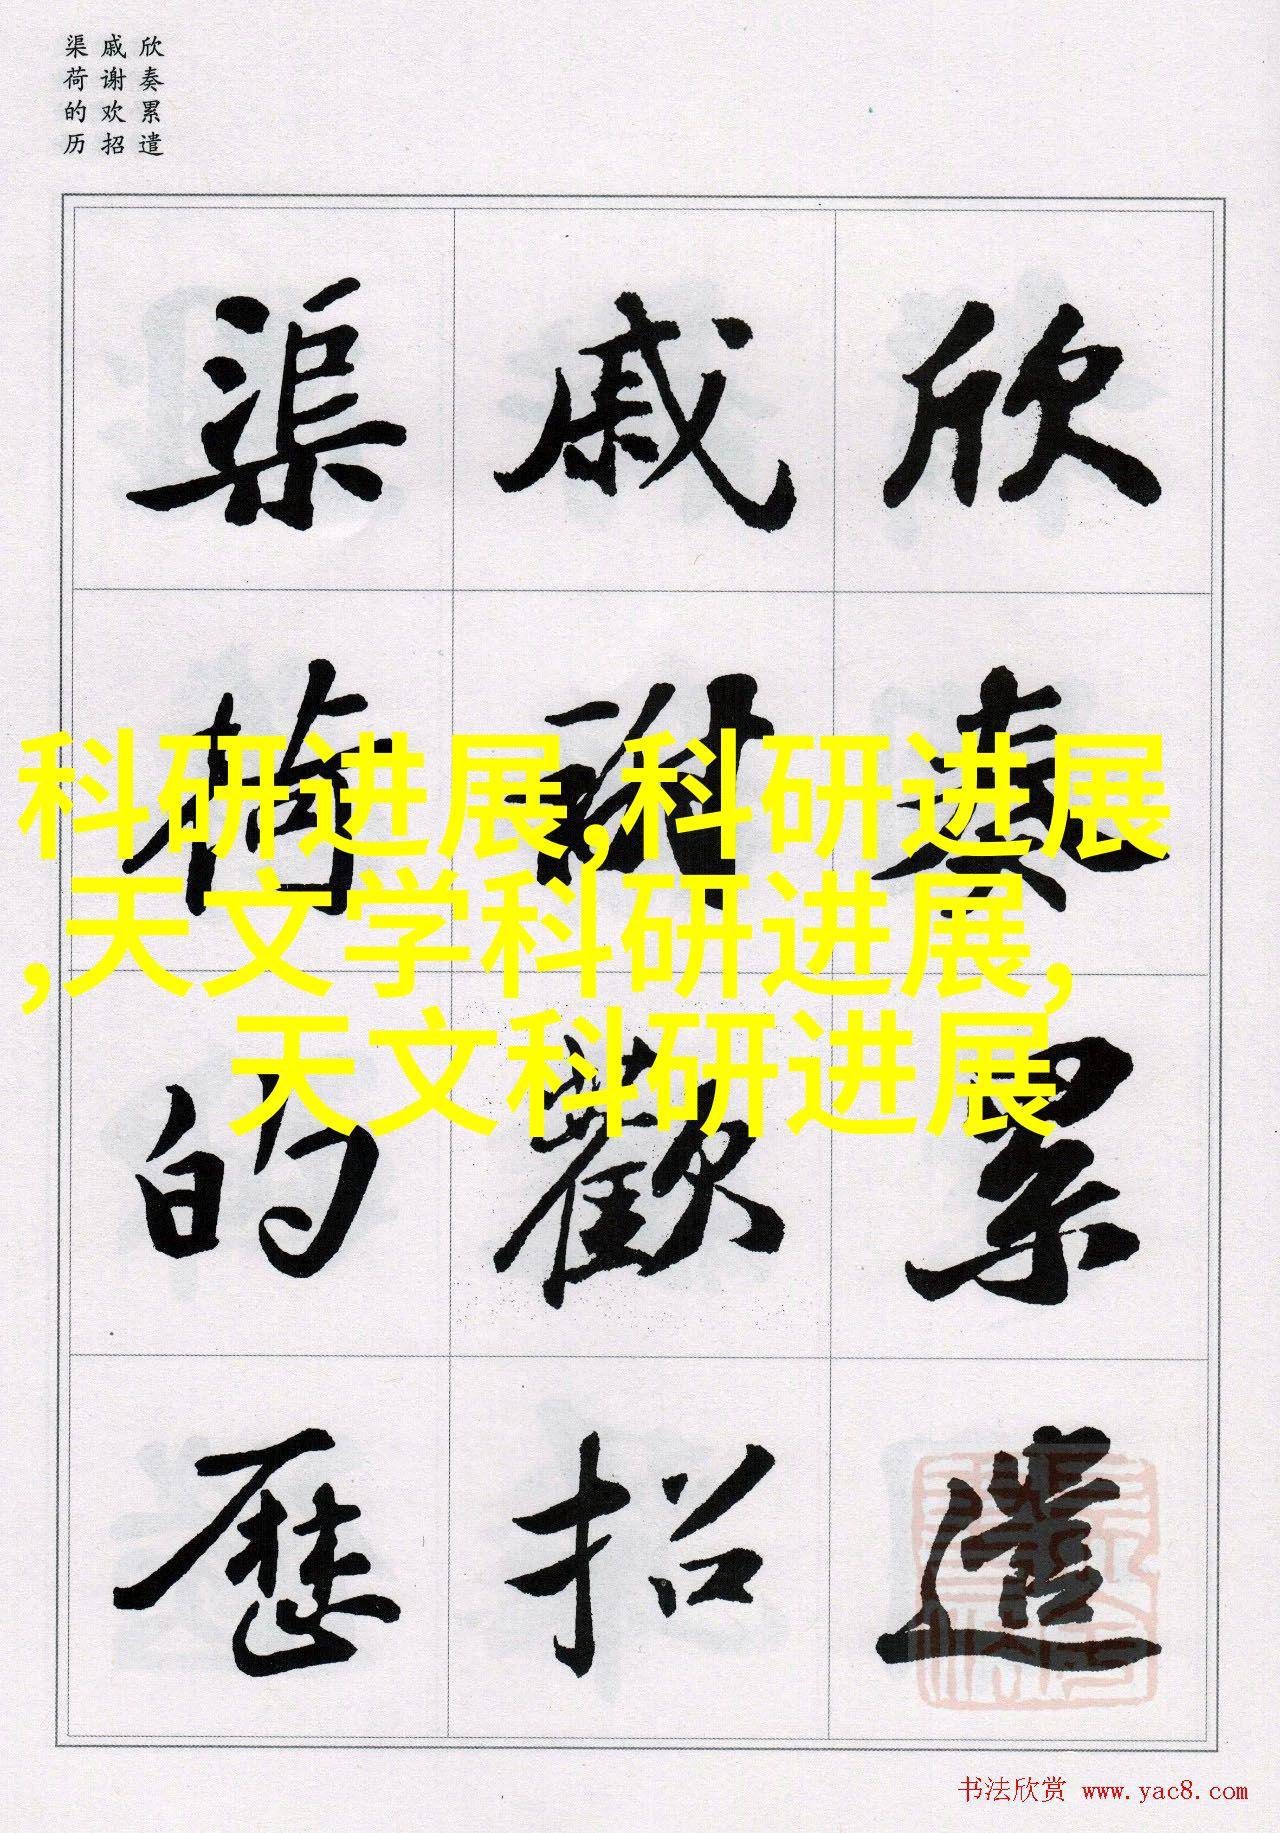 欣奏累遣
戚谢欢招
渠荷的历
欣奏累遣
戚謝歡招
渠荷的歷
科研进展,科研进展
,天文学科研进展,
天文科研进展
书法欣赏 www.yac8.com